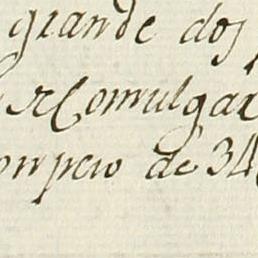 grande dos
Comulgar
con peso de 34